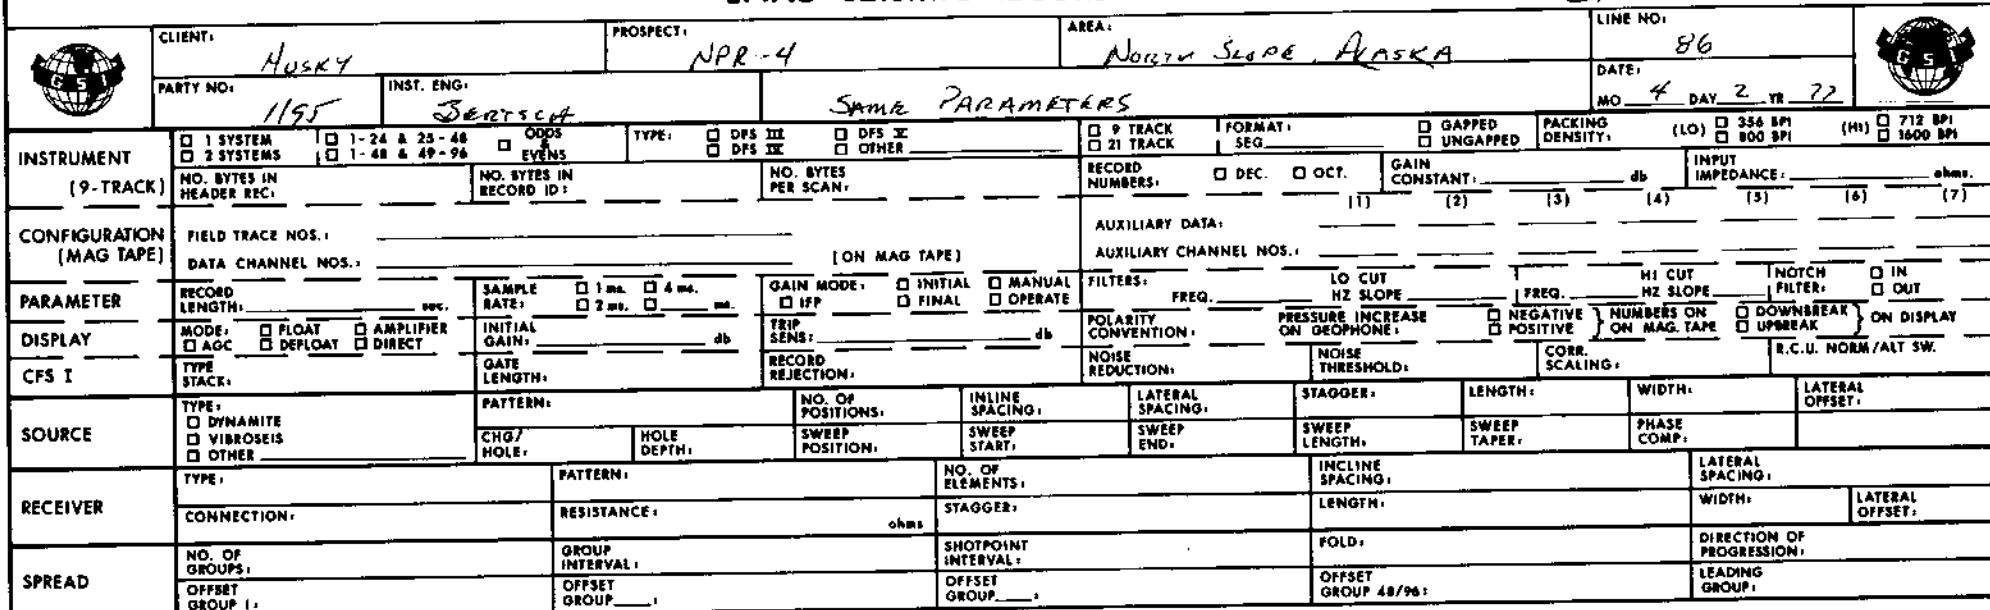 CLIENT: HUSKY PROSPECT: NPR-4 AREA: NORTH SLOPE, ALASKA LINE NO: 86
GSI GSI
PARTY NO: 1195 INST. ENG: BERTSCH SAME PARAMETERS DATE: MO 4 DAY 2 YR 77
INSTRUMENT (9-TRACK)
☐ 1 SYSTEM ☐ 1-24 & 25-48 ☐ ODDS & EVENS TYPE: ☐ DFS III ☐ DFS V ☐ 9 TRACK FORMAT: ☐ GAPPED PACKING DENSITY: (LO) ☐ 356 BPI (HI) ☐ 712 BPI
☐ 2 SYSTEMS ☐ 1-48 & 49-96 ☐ DFS IV ☐ OTHER ☐ 21 TRACK SEG. ☐ UNGAPPED ☐ 800 BPI ☐ 1600 BPI
NO. BYTES IN HEADER REC: NO. BYTES IN RECORD ID: NO. BYTES PER SCAN: RECORD NUMBERS: ☐ DEC. ☐ OCT. GAIN CONSTANT: db INPUT IMPEDANCE: ohms.
(1) (2) (3) (4) (5) (6) (7)
CONFIGURATION (MAG TAPE)
FIELD TRACE NOS.: AUXILIARY DATA:
DATA CHANNEL NOS.: [ON MAG TAPE] AUXILIARY CHANNEL NOS.:
PARAMETER
RECORD LENGTH: sec. SAMPLE RATE: ☐ 1 ms. ☐ 4 ms. ☐ 2 ms. ☐ ms. GAIN MODE: ☐ IFP ☐ INITIAL ☐ FINAL ☐ MANUAL ☐ OPERATE FILTERS: LO CUT FREQ. HZ SLOPE HI CUT FREQ. HZ SLOPE NOTCH FILTER: ☐ IN ☐ OUT
DISPLAY
MODE: ☐ FLOAT ☐ AMPLIFIER ☐ AGC ☐ DEFLOAT ☐ DIRECT INITIAL GAIN: db TRIP SENS: db POLARITY CONVENTION: PRESSURE INCREASE ON GEOPHONE: ☐ NEGATIVE ☐ POSITIVE } NUMBERS ON ON MAG. TAPE ☐ DOWNBREAK ☐ UPBREAK } ON DISPLAY
CFS I
TYPE STACK: GATE LENGTH: RECORD REJECTION: NOISE REDUCTION: NOISE THRESHOLD: CORR. SCALING: R.C.U. NORM/ALT SW.
SOURCE
TYPE: ☐ DYNAMITE ☐ VIBROSEIS ☐ OTHER
PATTERN: NO. OF POSITIONS: INLINE SPACING: LATERAL SPACING: STAGGER: LENGTH: WIDTH: LATERAL OFFSET:
CHG/HOLE: HOLE DEPTH: SWEEP POSITION: SWEEP START: SWEEP END: SWEEP LENGTH: SWEEP TAPER: PHASE COMP:
RECEIVER
TYPE: PATTERN: NO. OF ELEMENTS: INCLINE SPACING: LATERAL SPACING:
CONNECTION: RESISTANCE: ohms STAGGER: LENGTH: WIDTH: LATERAL OFFSET:
SPREAD
NO. OF GROUPS: GROUP INTERVAL: SHOTPOINT INTERVAL: FOLD: DIRECTION OF PROGRESSION:
OFFSET GROUP 1: OFFSET GROUP : OFFSET GROUP : OFFSET GROUP 48/96: LEADING GROUP: